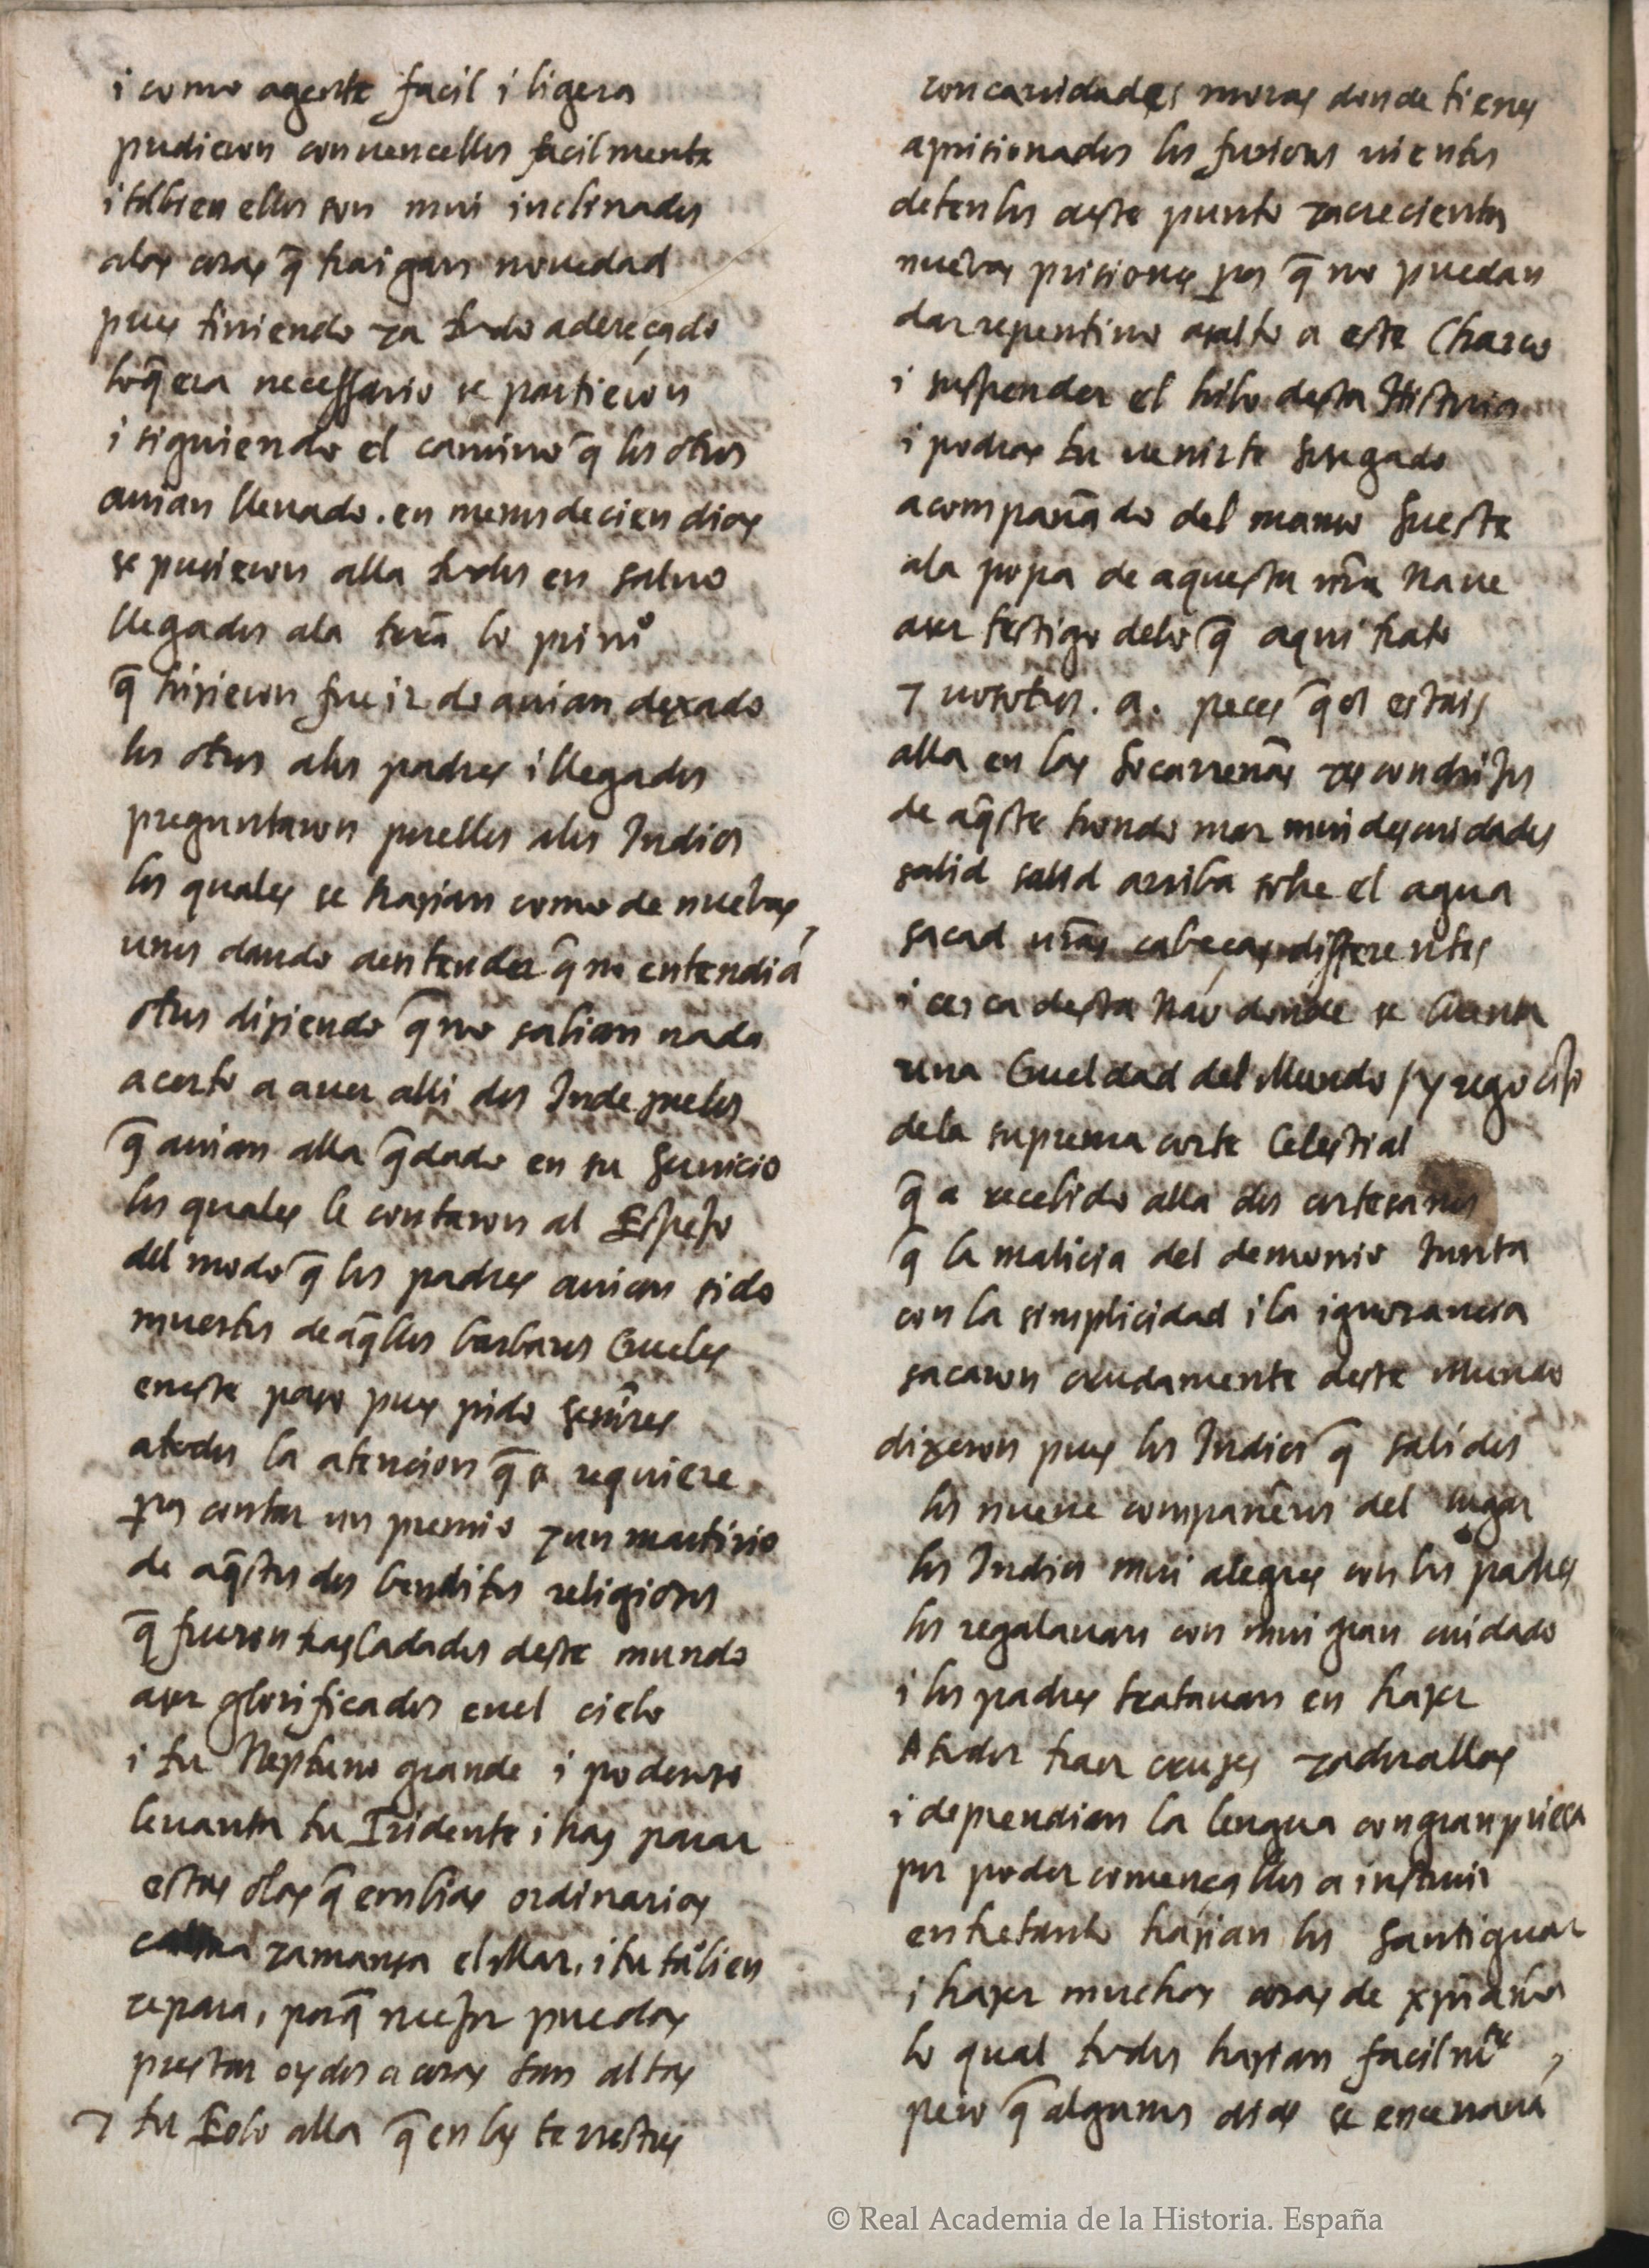 i como agente facil i ligera
pudieron conuencellos facilmente
i tãbien ellos son mui inclinados
alas cosas q̃ traigan nouedad
pues tiniendo ya todo adereçado
loq̃ era necessario se partieron
i siguiendo el camino q̃ los otros
auian lleuado. en menos de cien dias
se pusieron alla todos en saluo
llegados ala terã lo primº
q̃ hizieron fue ir do auian dexado
los otros alos padres i llegados
preguntaron porellos alos Indios
los quales se hazian como de nuebas,
unos dando aentender q̃ no entendiã
otros diziendo q̃ no sabian nada
acerto a auer alli dos Indezuelos
q̃ auian alla q̃dado en su Seruicio
los quales le contaron al Espejo
del modo q̃ los padres auian sido
muertos de aq̃llos barbaros Crueles
eneste paso pues pido señores
atodos la atencion q̃ se requiere
pa contar un premio y un martirio
de aq̃stos dos benditos religiosos
q̃ fueron trasladados deste mundo
aser glorificados enel cielo
i tu Neptuno grande i poderoso
leuanta tu Tridente i haz parar
estas olas q̃ embias ordinarias
calma y amansa el Mar, i tu tãbien
repara, porq̃ mejor puedas
prestar oydos a cosas tan altas
y tu Eolo alla q̃ en las terrestres
concauidades moras donde tienes
aprisionados los furiosos uientos
detenlos deste punto y acrecienta
nuebas prisiones pa q̃ no puedan
dar repentino asalto a este Charco
i suspender el hilo desta Historia
i podras tu uenirte sosegado
acompañado del manso Sueste
ala popa de aquesta nrã Naue
aser testigo delo q̃ aqui trato
y uosotros. a. peces q̃ os estais
alla en las socarreñas y escondrijos
de aq̃ste hondo mar mui descuidados
salid salid arriba sobre el agua
sacad urãs cabeças differentes
i cerca desta Nao donde se Cuenta
una Crueldad del Mundo / y regocijo
dela suprema corte Celestial
q̃ a recebido alla dos cortesanos
q̃ la malicia del demonio Junta
con la simplicidad i la ignorancia
sacaron crudamente deste Mundo
dixeron pues los Indios q̃ salidos
los nueue compañeros del lugar
los Indios mui alegres con los padres
los regalauan con mui gran cuidado
i los padres tratauan en hazer
A todos traer cruzes y adorallas
i deprendian la lengua con gran priesa
por poder començallos a instruir
entretanto hazian los Santiguar
i hazer muchas cosas de xpñano
lo qual todos hazian facilmte,
pero q̃ algunos dias se encerrauã
© Real Academia de la Historia. España